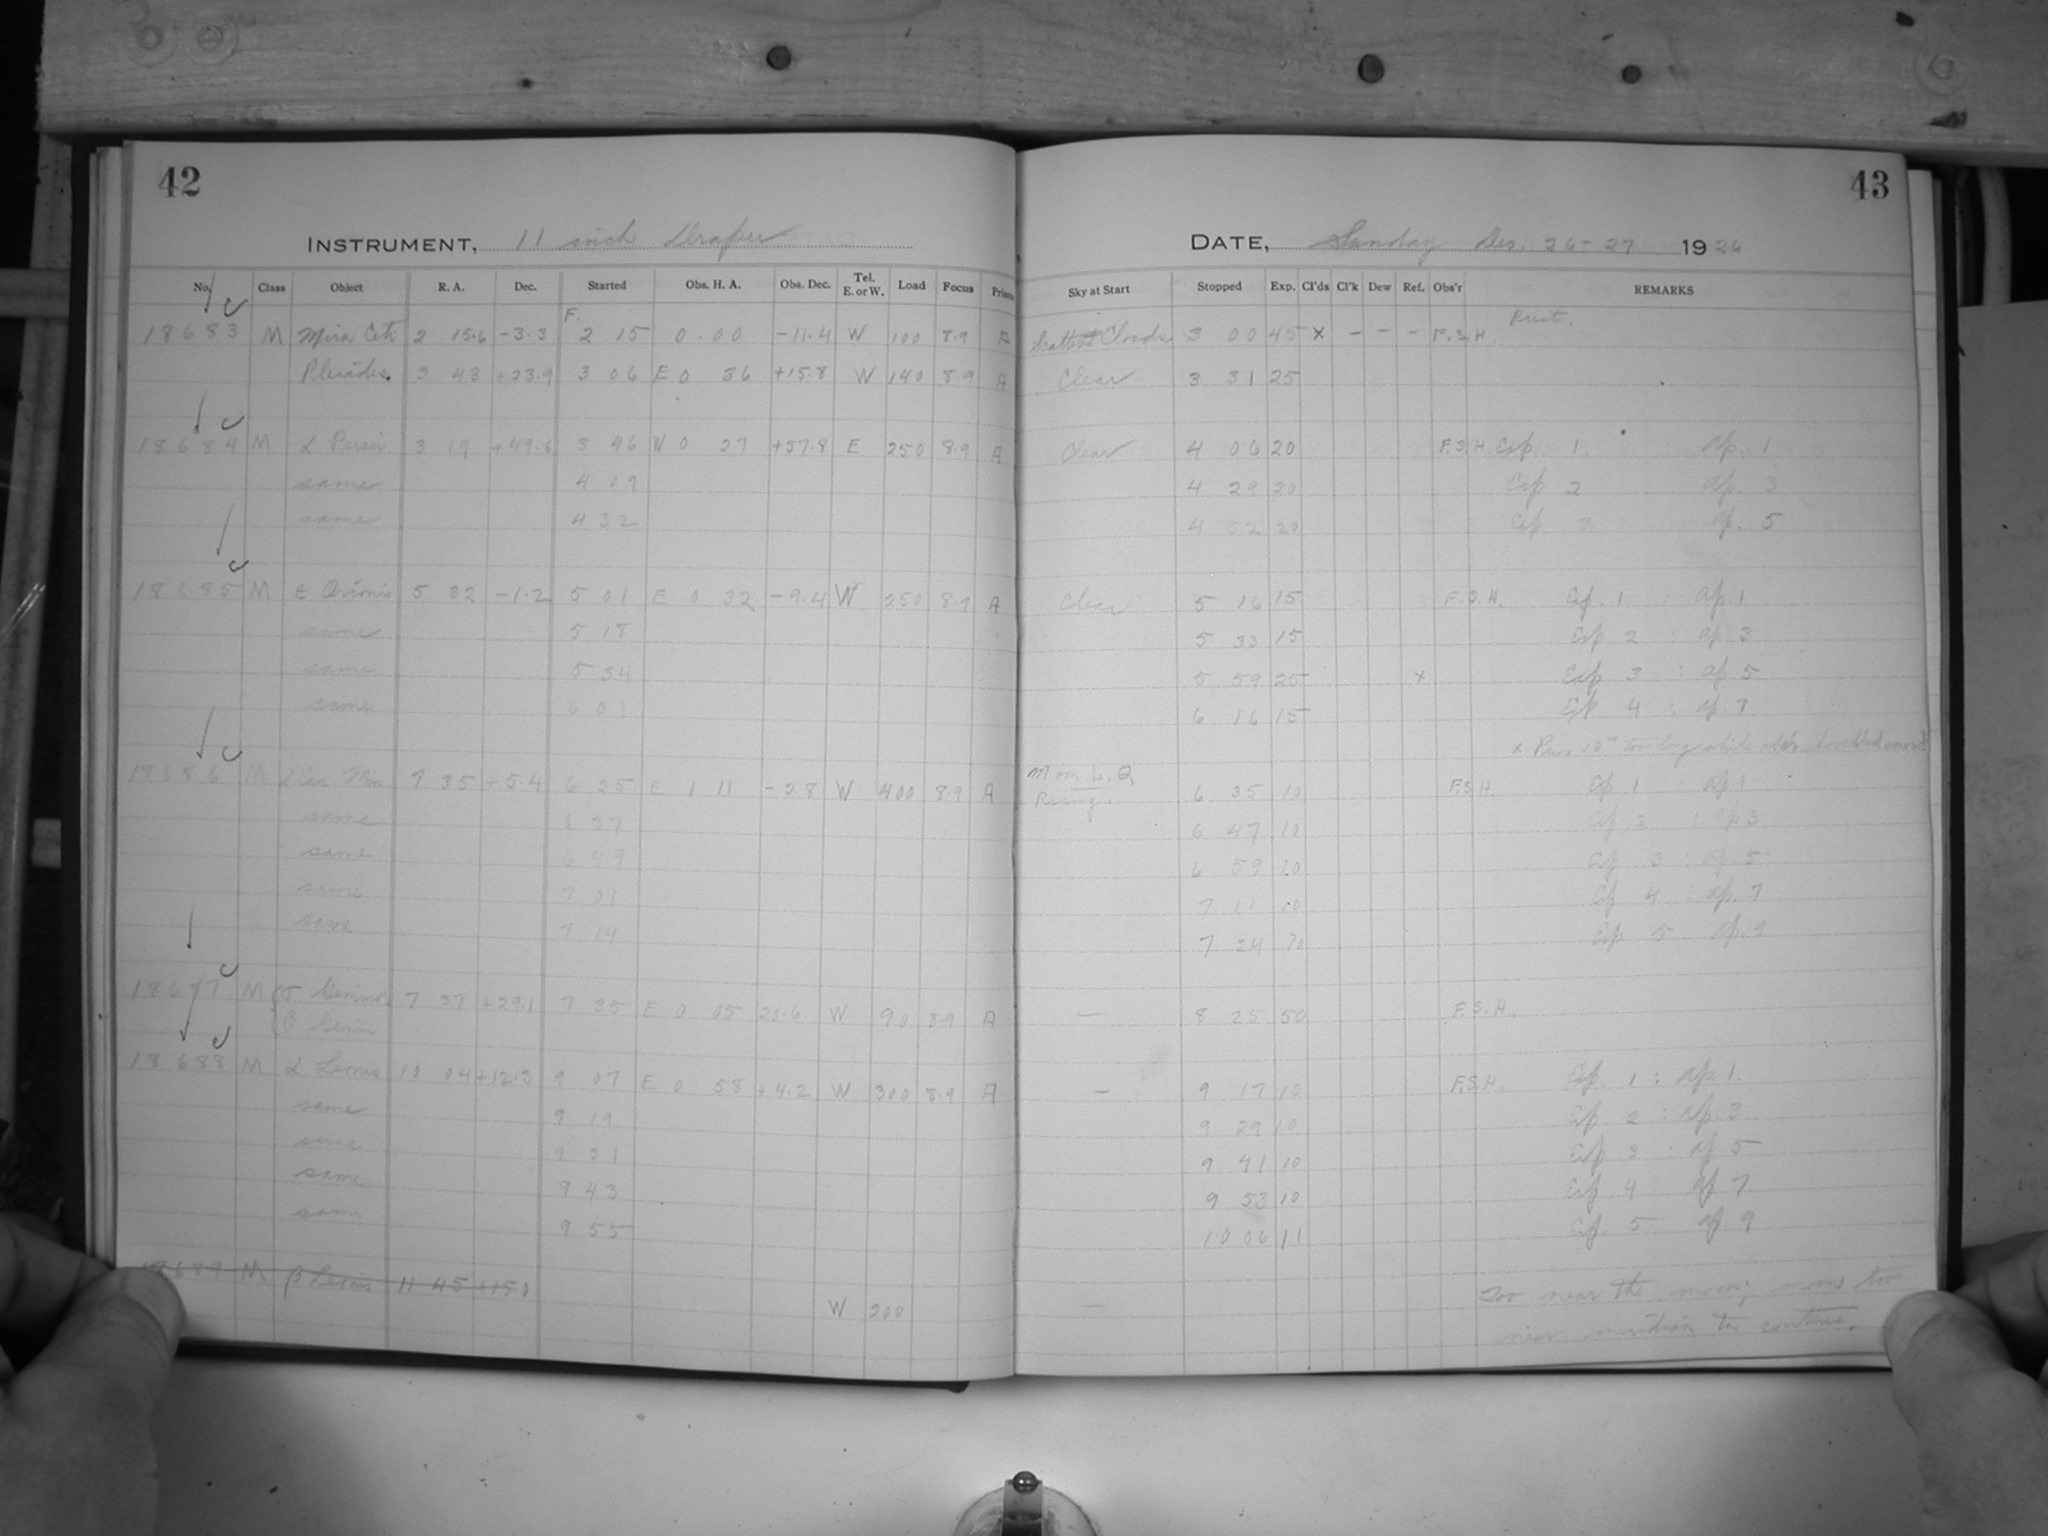 42
INSTRUMENT, 11 inch Draper
No. Class Object R. A. Dec. Started Obs. H. A. Obs. Dec. Tel. E. or W. Load Focus Prism
F.
18683 M Mira Ceti 2 15.6 -3.3 2 15 0.00 -11.4 W 100 8.9
Pleiades 3 43 +23.9 3 06 E 0 36 +15.8 W 140 8.9 A
18684 M α Persei 3 19 +49.6 3 46 W 0 27 +57.8 E 250 8.9 A
same 4 09
same 4 32
18685 M ε Orionis 5 32 -1.2 5 01 E 0 32 -9.4 W 250 8.9 A
same 5 18
same 5 34
same 6 01
18686 M α Can Min 7 35 +5.4 6 25 E 1 11 -2.8 W 400 8.9 A
same 6 37
same 6 49
same 7 01
same 7 14
18687 M σ Gemin 7 37 +29.1 7 35 E 0 05 20.6 W 90 8.9 A
β Gemin
18688 M α Leonis 10 04 +12.3 9 07 E 0 58 +4.2 W 300 8.9 A
same 9 19
same 9 31
same 9 43
same 9 55
18689 M β Leonis 11 45 +15.0
W 200
43
DATE, Sunday Dec. 26-27 1926
Sky at Start Stopped Exp. Cl'ds Cl'k Dew Ref. Obs'r REMARKS
Clouds 3 00 45 x - - - F.S.H.
Clear 3 31 25
Clear 4 06 20 F.S.H. Exp 1 ap. 1
4 29 20 Exp 2 ap. 3
4 52 20 Exp 3 ap. 5
Clear 5 16 15 F.S.H. Exp. 1 : ap. 1
5 33 15 Exp 2 : ap. 3
5 59 25 x Exp 3 : ap. 5
6 16 15 Exp 4 : ap. 7
x 10m too long while obs'r
Moon L.Q.
Rising. 6 35 10 F.S.H. Exp 1 : ap 1
6 47 10 Exp 2 : ap 3
6 59 10 Exp 3 : ap 5
7 11 10 Exp 4 : ap. 7
7 24 10 Exp 5 ap. 9
— 8 25 50 F.S.H.
— 9 17 10 F.S.H. Exp. 1 : ap. 1
9 29 10 Exp 2 : ap. 3
9 41 10 Exp 3 : ap 5
9 53 10 Exp. 4 ap. 7
10 06 11 Exp. 5 ap. 9
— Too near the moon; moon too
near meridian to continue.